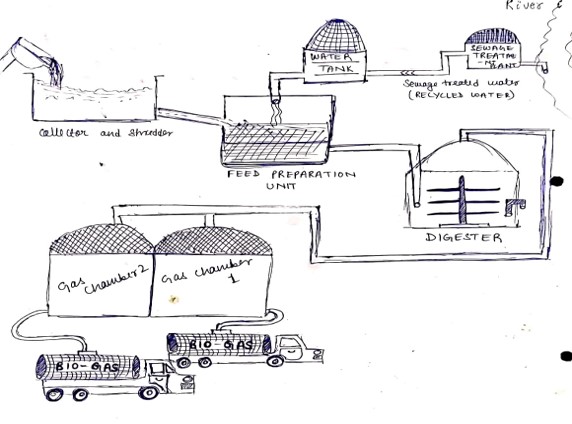 River &
WATER
TANK
SEWAGE
TREATME
-NT
PLANT
Sewage treated water
(RECYCLED WATER)
Collector and Shredder
FEED PREPARATION
UNIT
DIGESTER
Gas
chamber 2
Gas chamber
1
BIO-GAS
BIO-GAS